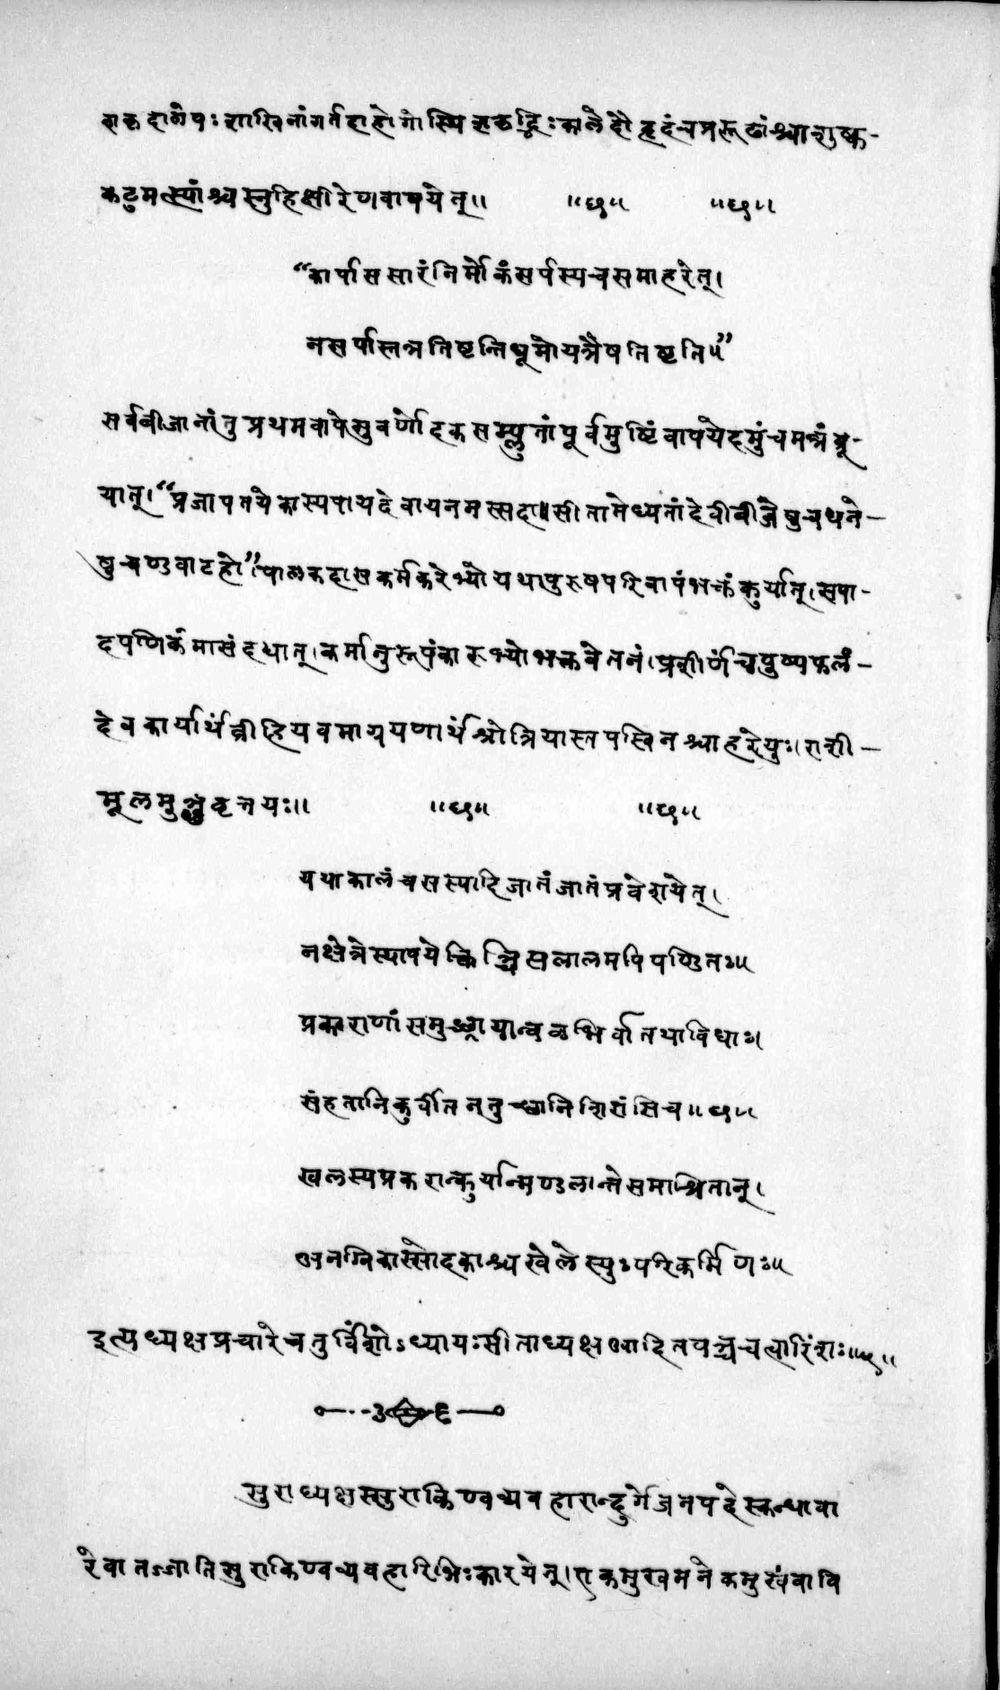 शकृदालेपः शाखिनांगर्तदाहोगोस्थिशकृद्भिःकालेदौहृदंचप्ररूढांश्चाशुष्क-
कटुमत्स्यांश्चस्नुहिक्षीरेणवापयेत्॥ ॥छ॥ ॥छ॥
“कार्पाससारंनिर्मोकंसर्पस्यचसमाहरेत्।
नसर्पास्तत्रतिष्टन्तिधूमोयत्रैषतिष्टति॥”
सर्वबीजानांतुप्रथमवापेसुवर्णोदकसम्प्लुतांपूर्वमुष्टिंवापयेदमुंचमन्त्रंब्रू-
यात्।“प्रजापतयेकास्यपायदेवायनमस्सदा॥सीतामेध्यतांदेवीबीजेषुचधने-
षुचण्डवाटहो”।पालकदासकर्मकरेभ्योयथापुरुषपरिवापंभक्तंकुर्यात्।सपा-
दपणिकंमासंदद्यात्।कर्मानुरूपंकारुभ्योभक्तवेतनं।प्रशीर्णंचपुष्पफलं-
देवकार्यार्थंव्रीहियवमाग्रयणार्थंश्रोत्रियास्तपस्विनश्चाहरेयुः।राशी-
मूलमुञ्छवृत्तयः॥ ॥छ॥ ॥छ॥
यथाकालंचसस्यादिजातंजातंप्रवेशयेत्।
नक्षेत्रेस्थापयेत्किञ्चित्पलालमपिपण्डितः॥
प्रकाराणांसमुच्छ्रायान्वलभिर्वातथाविधाः।
संहतानिकुर्वीतनतुच्छानिशिसंसिच॥छ॥
खलस्यप्रकरान्कुर्यान्मण्डलान्तेसमाश्रितान्।
अनग्निकास्सोदकाश्चखेलेस्युःपरिकर्मिणः॥
इत्यध्यक्षप्रचारेचतुर्विंशोऽध्यायःसीताध्यक्षआदितपञ्चचत्वारिंशः॥५॥
सुराध्यक्षस्सुराकिण्वव्यवहारान्दुर्गेजनपदेस्कन्धावा
रेवातज्जातिसुराकिण्वव्यवहारिभिःकारयेत्।एकमुखमनेकमुखंवावि